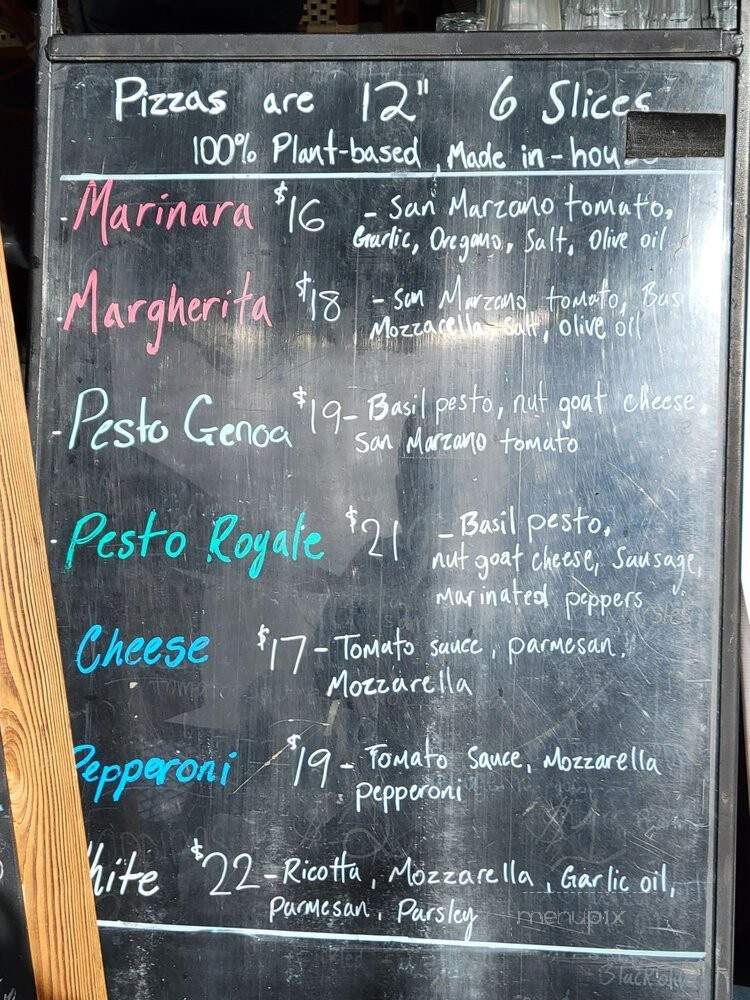 Pizzas are 12" 6 Slices
100% Plant-based, Made in-hou
- Marinara $16 - San Marzano tomato,
Garlic, Oregano, Salt, Olive oil
- Margherita $18 - San Marzano tomato, Bas
Mozzacella, Salt, olive oil
- Pesto Genoa $19 - Basil pesto, nut goat cheese,
San Marzano tomato
- Pesto Royale $21 - Basil pesto,
nut goat cheese, Sausage,
marinated peppers
Cheese $17 - Tomato sauce, parmesan,
Mozzarella
Pepperoni $19 - Tomato Sauce, Mozzarella
pepperoni
hite $22 - Ricotta, Mozzarella, Garlic oil,
Parmesan, Parsley
menupix